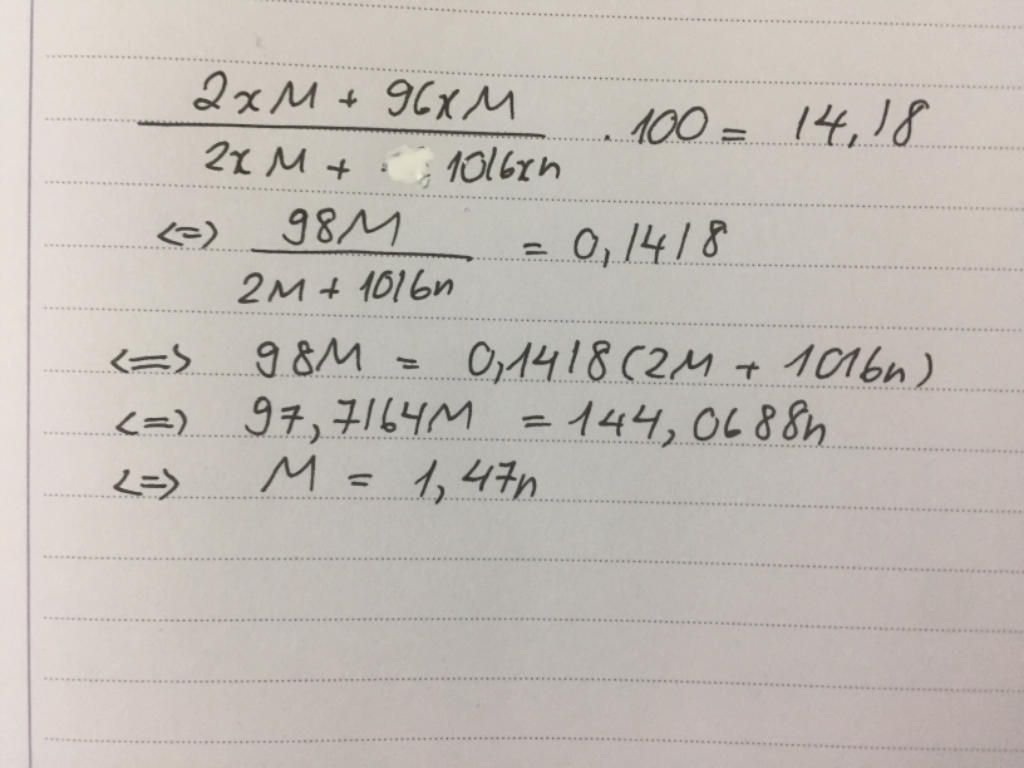 2xM + 96xM
─────────── . 100 = 14,18
2xM + 1016xn
<=> 98M / (2M + 1016n) = 0,1418
<=> 98M = 0,1418(2M + 1016n)
<=> 97,7164M = 144,0688n
<=> M = 1,47n